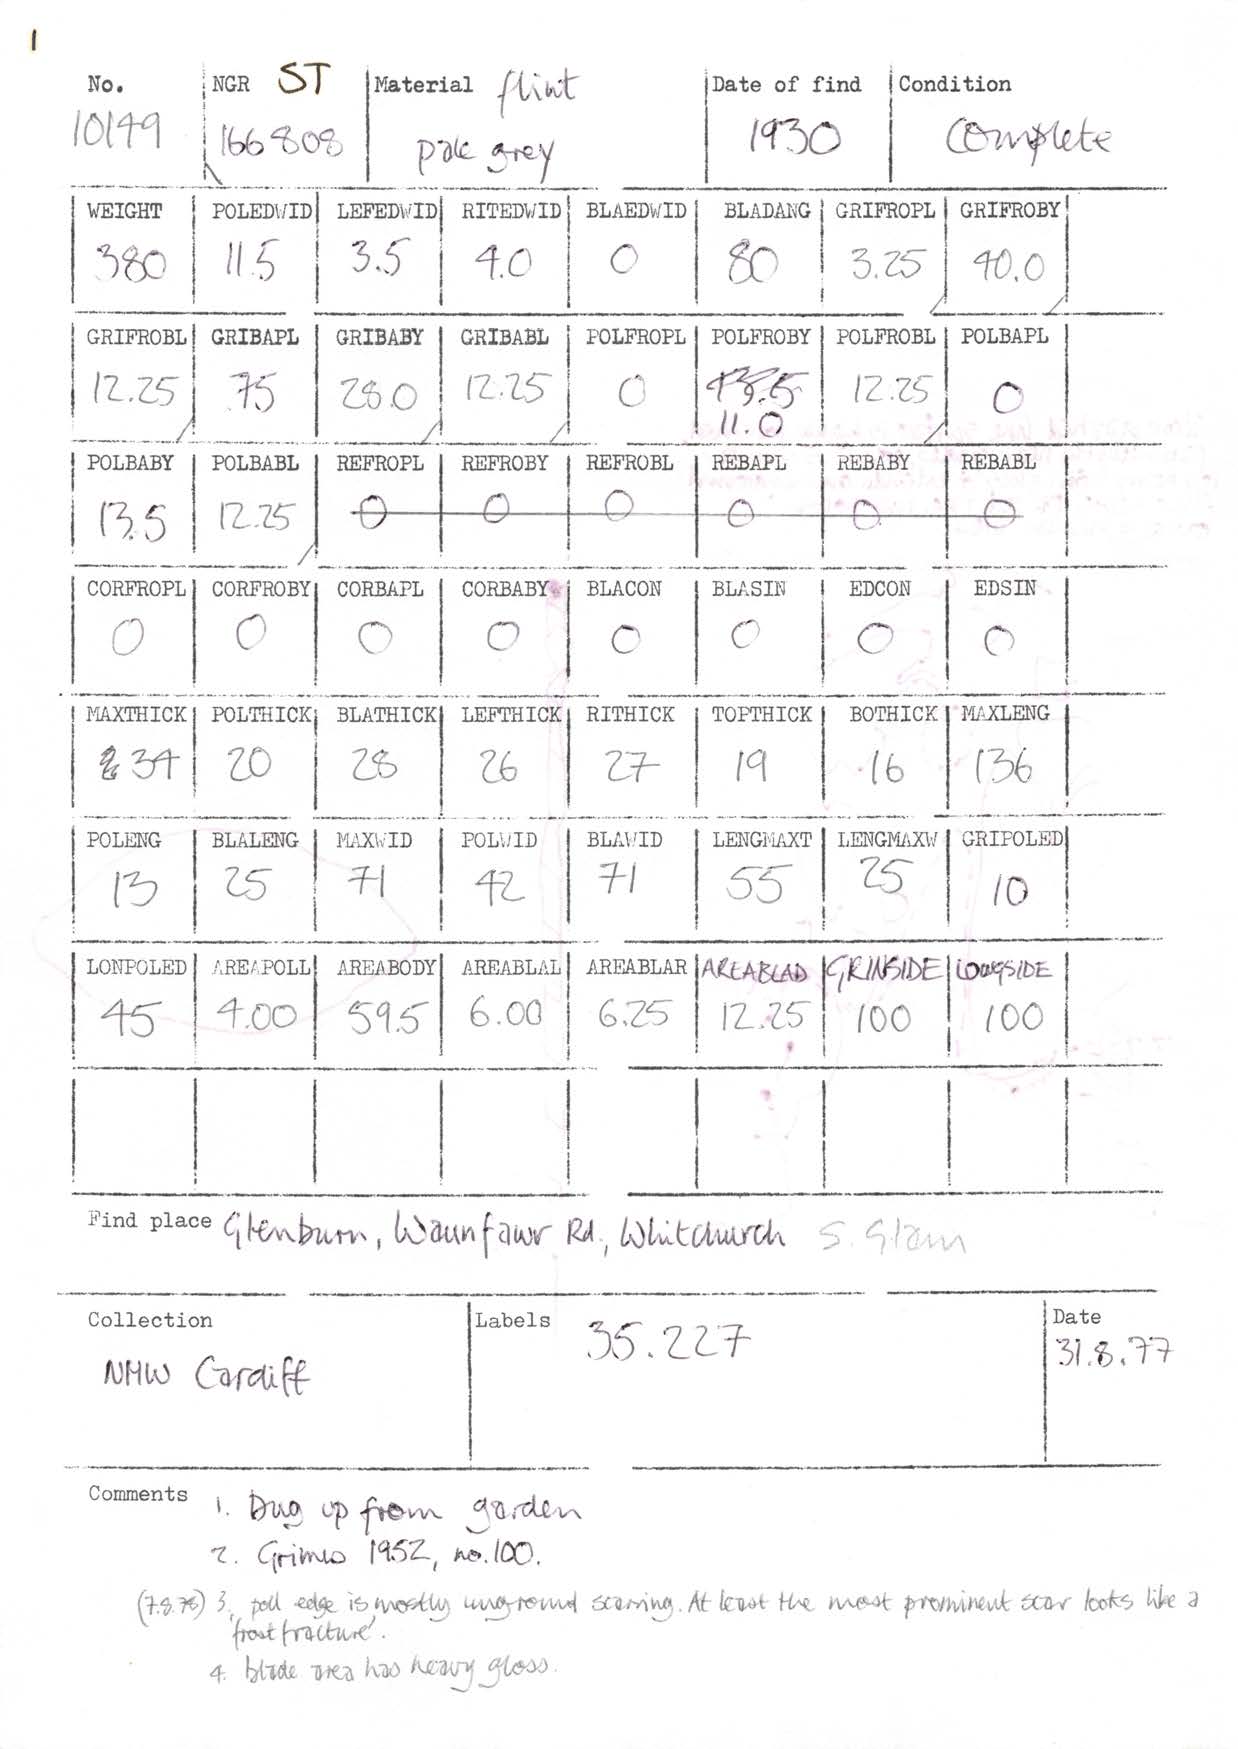 1
No. NGR ST Material flint Date of find Condition
10149 166808 pale grey 1930 Complete
WEIGHT POLEDWID LEFEDWID RITEDWID BLAEDWID BLADANG GRIFROPL GRIFROBY
380 11.5 3.5 4.0 0 80 3.25 40.0
GRIFROBL GRIBAPL GRIBABY GRIBABL POLFROPL POLFROBY POLFROBL POLBAPL
12.25 .75 28.0 12.25 0 13.5 12.25 0
11.0
POLBABY POLBABL REFROPL REFROBY REFROBL REBAPL REBABY REBABL
13.5 12.25 0 0 0 0 0 0
CORFROPL CORFROBY CORBAPL CORBABY BLACON BLASIN EDCON EDSIN
0 0 0 0 0 0 0 0
MAXTHICK POLTHICK BLATHICK LEFTHICK RITHICK TOPTHICK BOTHICK MAXLENG
34 20 28 26 27 19 16 136
POLENG BLALENG MAXWID POLWID BLAWID LENGMAXT LENGMAXW GRIPOLED
13 25 71 42 71 55 25 10
LONPOLED AREAPOLL AREABODY AREABLAL AREABLAR AREABLAD GRINSIDE LONGSIDE
45 4.00 59.5 6.00 6.25 12.25 100 100
Find place Glenburn, Waunfawr Rd., Whitchurch S. Glam
Collection Labels 35.227 Date
NMW Cardiff 31.8.77
Comments 1. Dug up from garden
2. Grimes 1952, no. 100.
(7.8.78) 3. poll edge is mostly unground scarring. At least the most prominent scar looks like a
'frost fracture'.
4. blade area has heavy gloss.